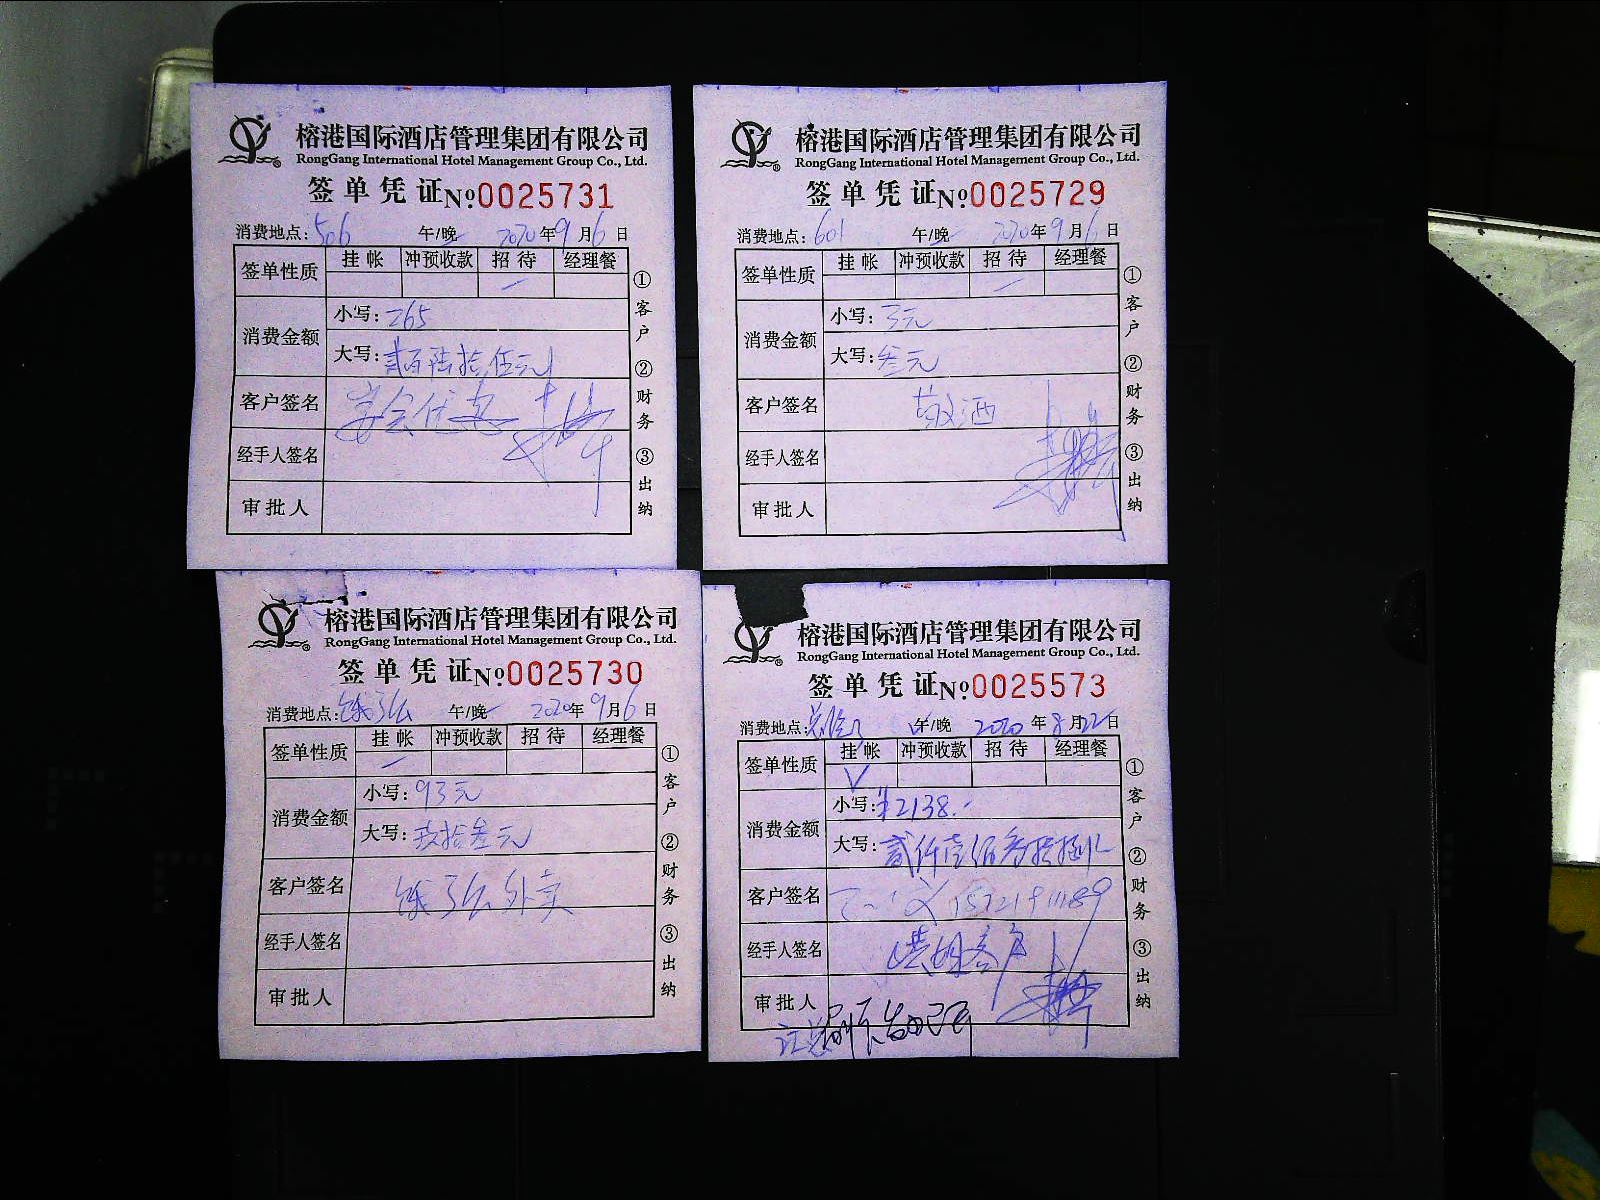 榕港国际酒店管理集团有限公司
RongGang International Hotel Management Group Co., Ltd.
签单凭证 No 0025731
消费地点: 506 午/晚 2020年9月6日
签单性质 挂帐 冲预收款 招待 经理餐
消费金额 小写: 265
大写: 贰百陆拾伍元
客户签名 宴会优惠
经手人签名
审批人
①客户 ②财务 ③出纳
榕港国际酒店管理集团有限公司
RongGang International Hotel Management Group Co., Ltd.
签单凭证 No 0025729
消费地点: 601 午/晚 2020年9月6日
签单性质 挂帐 冲预收款 招待 经理餐
消费金额 小写: 3元
大写: 叁元
客户签名 敬酒
经手人签名
审批人
①客户 ②财务 ③出纳
榕港国际酒店管理集团有限公司
RongGang International Hotel Management Group Co., Ltd.
签单凭证 No 0025730
消费地点: 饿了么 午/晚 2020年9月6日
签单性质 挂帐 冲预收款 招待 经理餐
消费金额 小写: 93元
大写: 玖拾叁元
客户签名 饿了么外卖
经手人签名
审批人
①客户 ②财务 ③出纳
榕港国际酒店管理集团有限公司
RongGang International Hotel Management Group Co., Ltd.
签单凭证 No 0025573
消费地点: 午/晚 2020年8月22日
签单性质 挂帐 冲预收款 招待 经理餐
消费金额 小写: ¥2138.-
大写: 贰仟壹佰叁拾捌
客户签名
经手人签名
审批人
①客户 ②财务 ③出纳